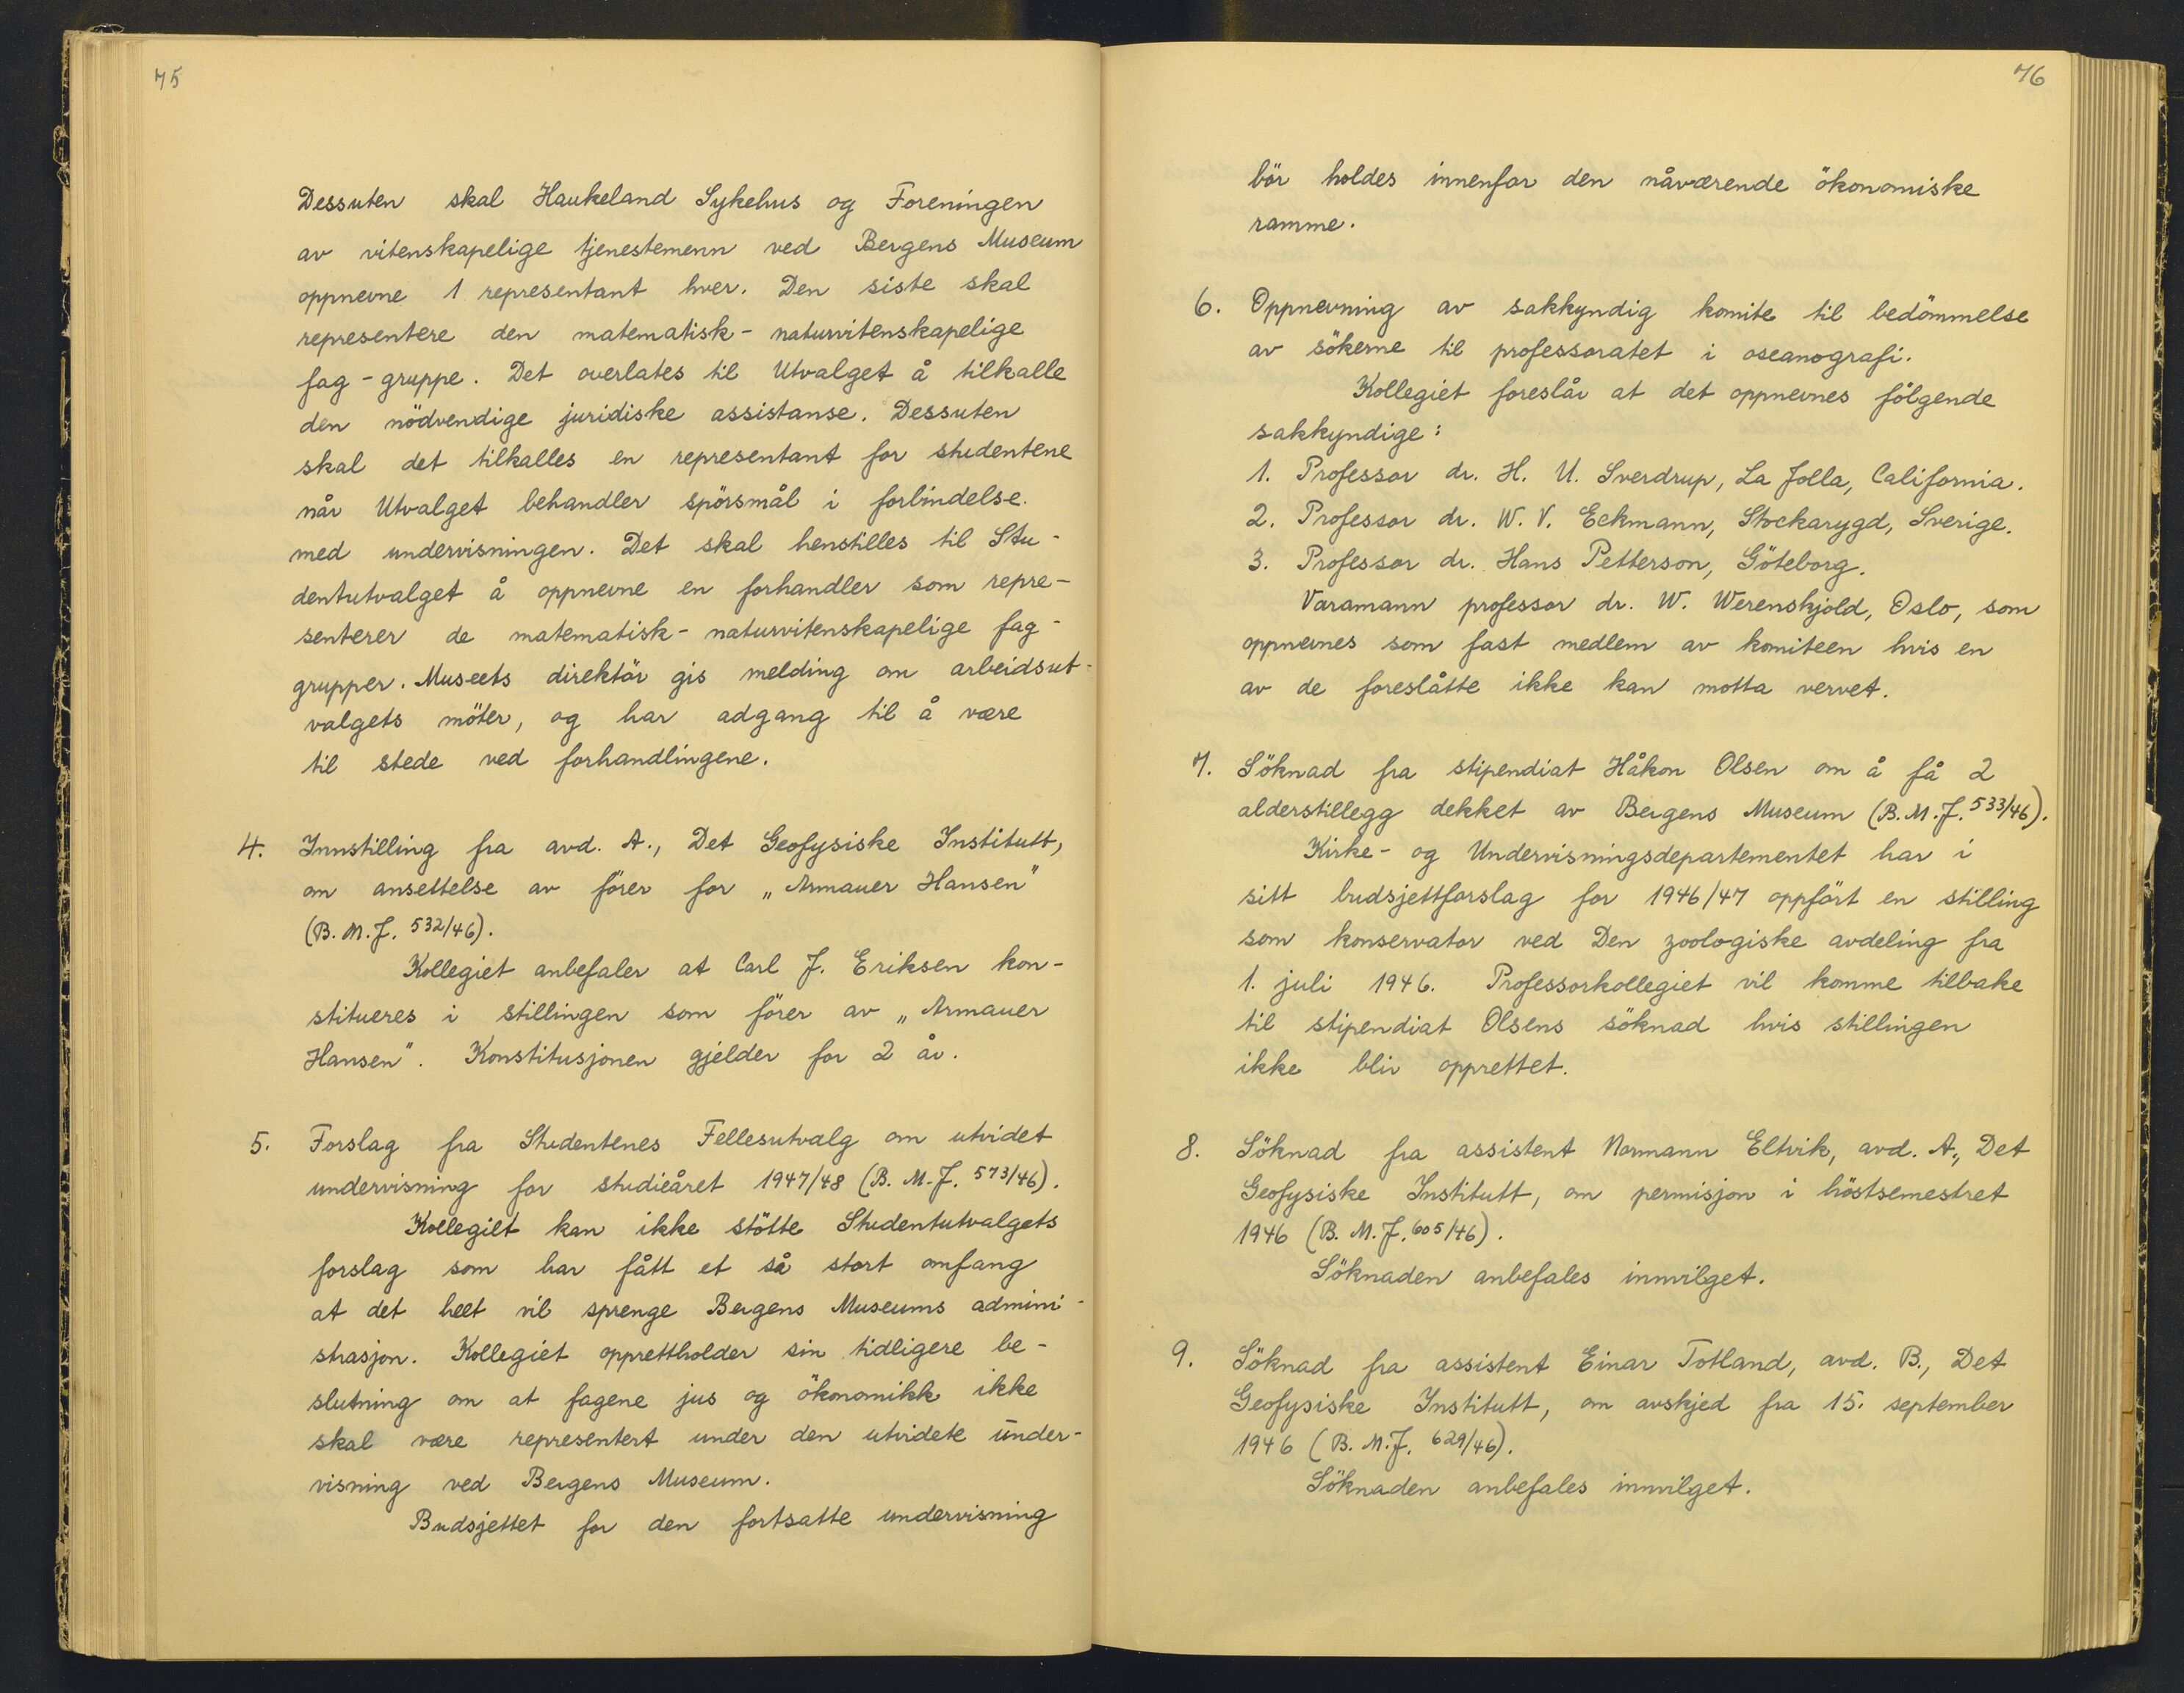 75
Dessuten skal Haukeland Sykehus og Foreningen
av vitenskapelige tjenestemenn ved Bergens Museum
oppnevne 1 representant hver. Den siste skal
representere den matematisk-naturvitenskapelige
fag-gruppe. Det overlates til Utvalget å tilkalle
den nödvendige juridiske assistanse. Dessuten
skal det tilkalles en representant for studentene
når Utvalget behandler spörsmål i forbindelse
med undervisningen. Det skal henstilles til Stu-
dentutvalget å oppnevne en forhandler som repre-
senterer de matematisk-naturvitenskapelige fag-
grupper. Museets direktör gis melding om arbeidsut-
valgets möter, og har adgang til å være
til stede ved forhandlingene.
4. Innstilling fra avd. A., Det Geofysiske Institutt,
om ansettelse av förer for „Armauer Hansen"
(B.M.J. 532/46).
Kollegiet anbefaler at Carl J. Eriksen kon-
stitueres i stillingen som förer av „Armauer
Hansen". Konstitusjonen gjelder for 2 år.
5. Forslag fra Studentenes Fellesutvalg om utvidet
undervisning for studieåret 1947/48 (B.M.J. 573/46).
Kollegiet kan ikke stötte Studentutvalgets
forslag som har fått et så stort omfang
at det helt vil sprenge Bergens Museums admini-
strasjon. Kollegiet opprettholder sin tidligere be-
slutning om at fagene jus og ökonomikk ikke
skal være representert under den utvidete under-
visning ved Bergens Museum.
Budsjettet for den fortsatte undervisning
76
bör holdes innenfor den nåværende ökonomiske
ramme.
6. Oppnevning av sakkyndig komite til bedömmelse
av sökerne til professoratet i oseanografi.
Kollegiet foreslår at det oppnevnes fölgende
sakkyndige:
1. Professor dr. H. U. Sverdrup, La Jolla, California.
2. Professor dr. W. V. Eckmann, Stockarygd, Sverige.
3. Professor dr. Hans Petterson, Göteborg.
Varamann professor dr. W. Werenskjold, Oslo, som
oppnevnes som fast medlem av komiteen hvis en
av de foreslåtte ikke kan motta vervet.
7. Söknad fra stipendiat Håkon Olsen om å få 2
alderstillegg dekket av Bergens Museum (B.M.J. 533/46).
Kirke- og Undervisningsdepartementet har i
sitt budsjettforslag for 1946/47 oppfört en stilling
som konservator ved Den zoologiske avdeling fra
1. juli 1946. Professorkollegiet vil komme tilbake
til stipendiat Olsens söknad hvis stillingen
ikke blir opprettet.
8. Söknad fra assistent Normann Eltvik, avd. A., Det
Geofysiske Institutt, om permisjon i höstsemestret
1946 (B.M.J. 605/46).
Söknaden anbefales innvilget.
9. Söknad fra assistent Einar Totland, avd. B., Det
Geofysiske Institutt, om avskjed fra 15. september
1946 (B.M.J. 629/46).
Söknaden anbefales innvilget.